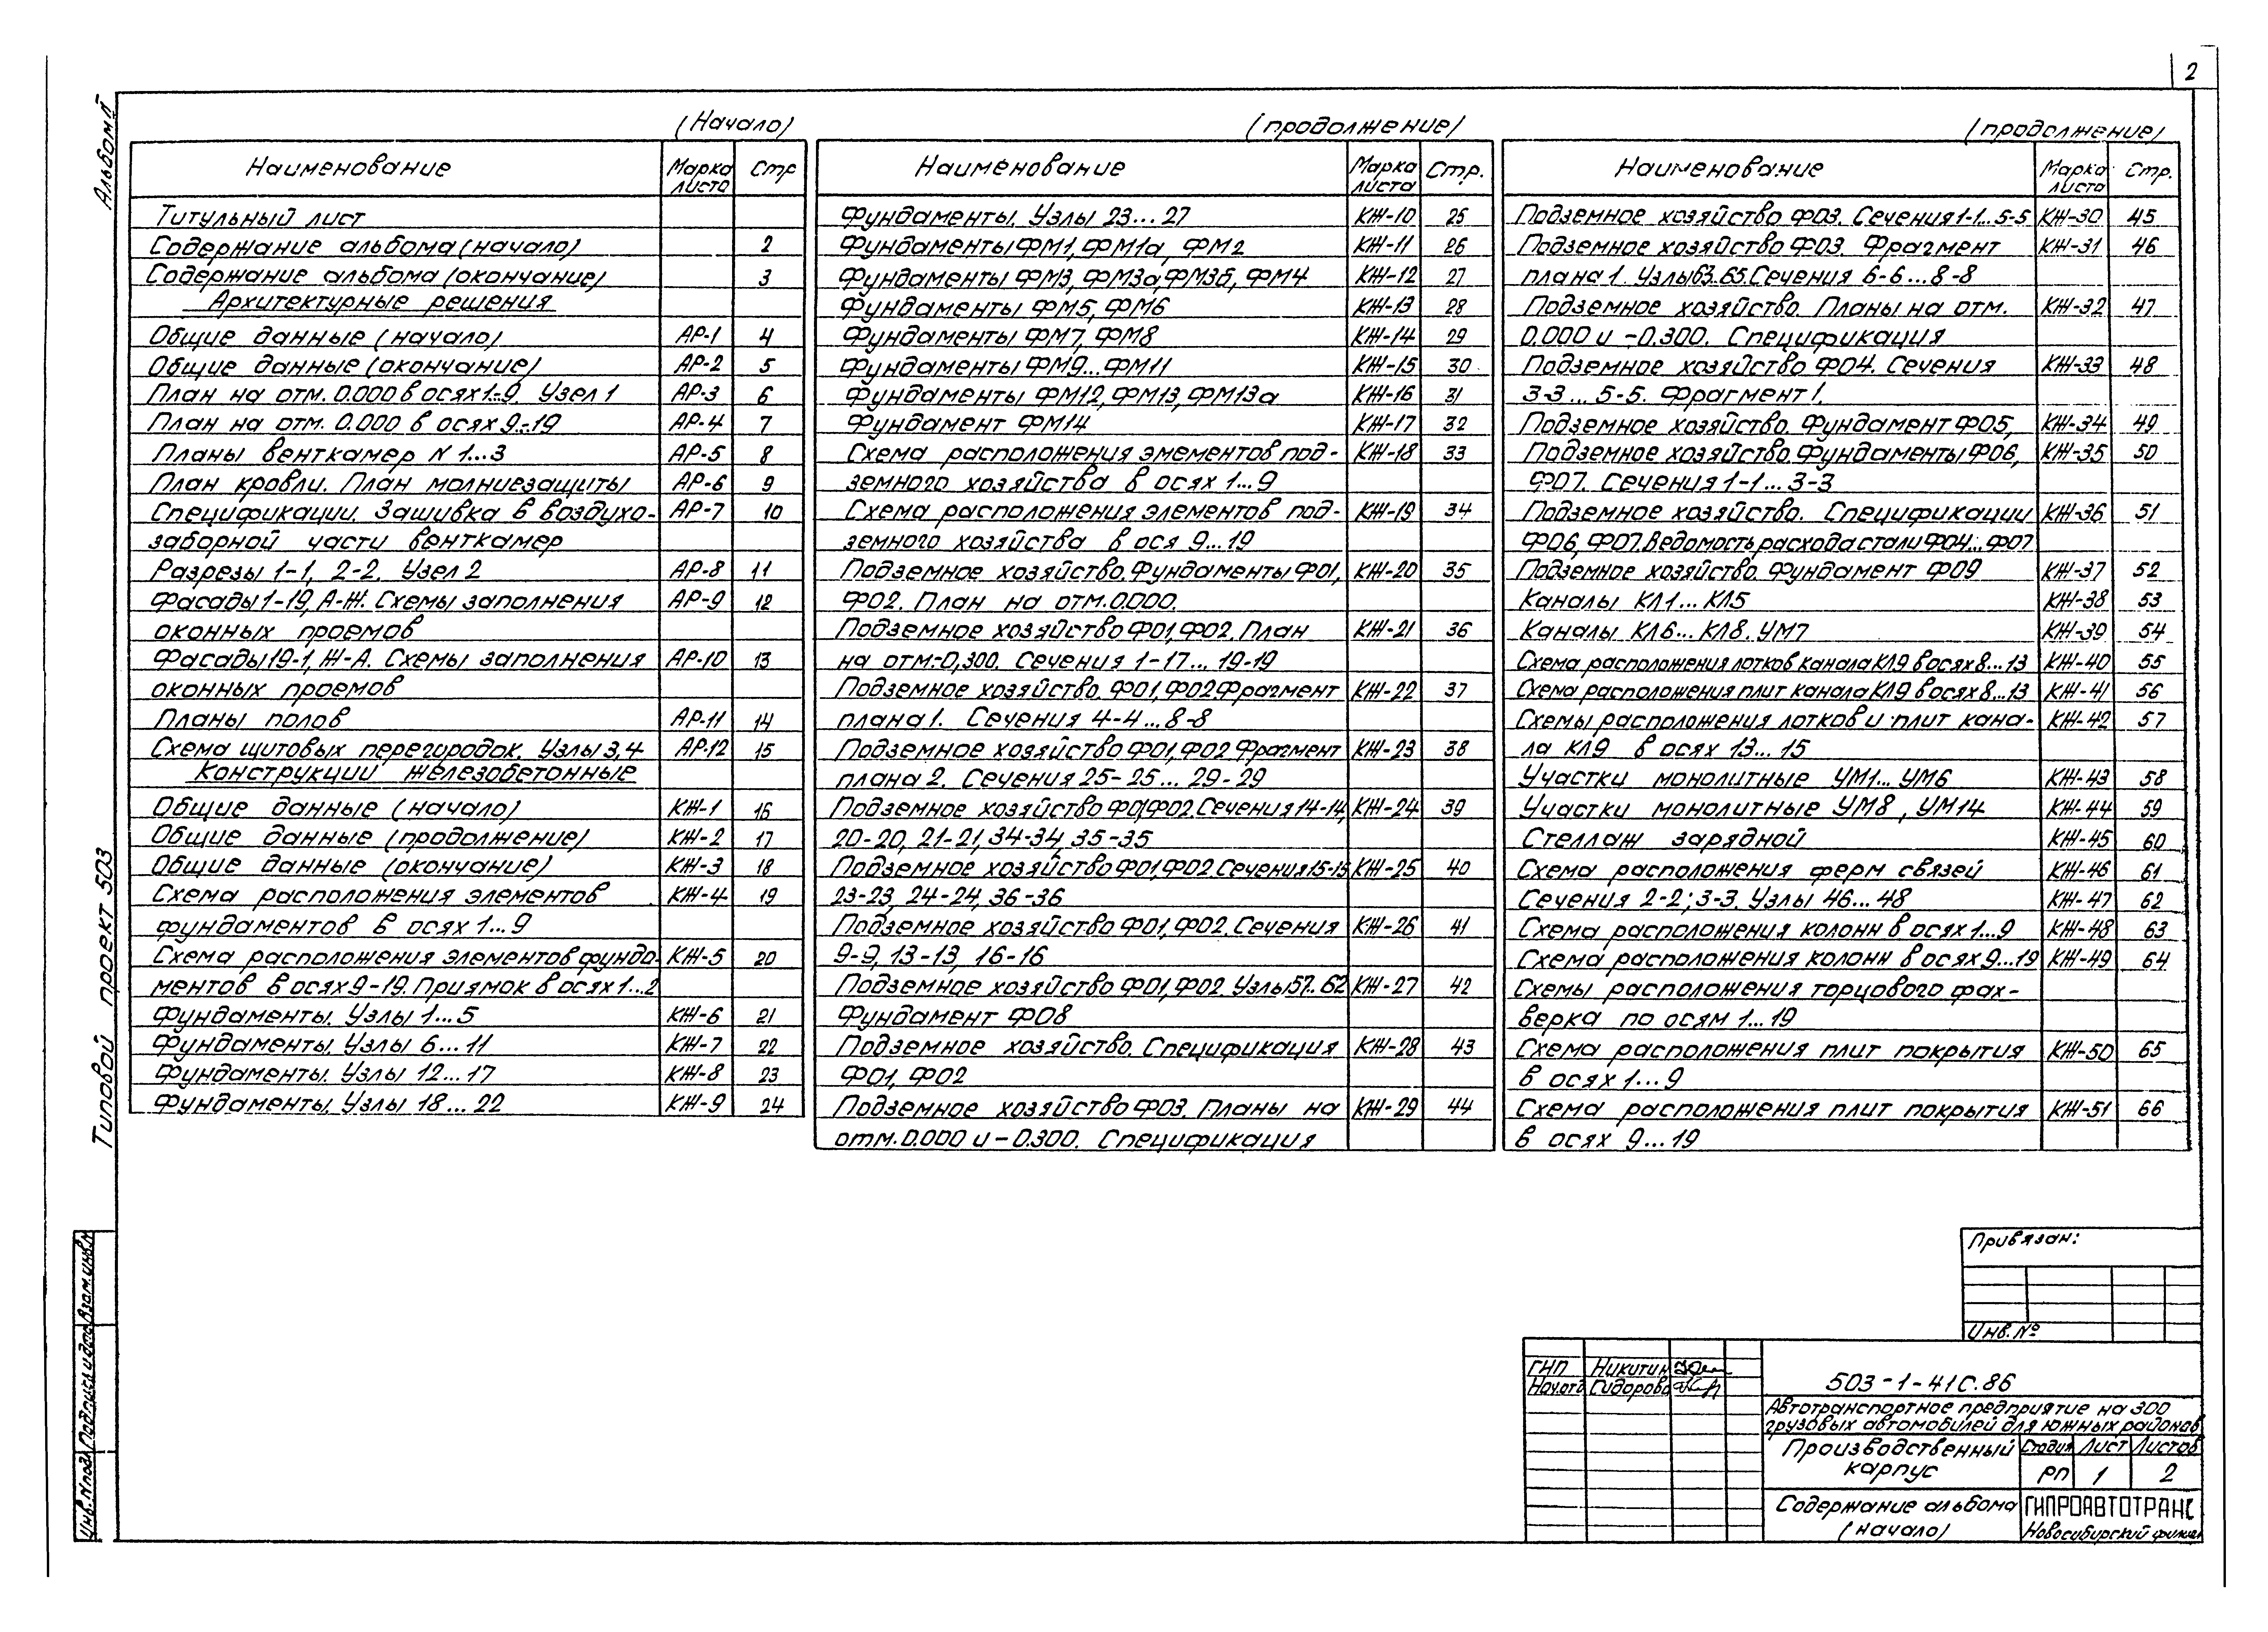 2
Альбом II
Типовой проект 503
(Начало)
Наименование Марка листа Стр
Титульный лист
Содержание альбома (начало) 2
Содержание альбома (окончание) 3
Архитектурные решения
Общие данные (начало) АР-1 4
Общие данные (окончание) АР-2 5
План на отм. 0.000 в осях 1-9. Узел 1 АР-3 6
План на отм. 0.000 в осях 9-19 АР-4 7
Планы венткамер N 1...3 АР-5 8
План кровли. План молниезащиты АР-6 9
Спецификации. Зашивка в воздухо- АР-7 10
заборной части венткамер
Разрезы 1-1, 2-2. Узел 2 АР-8 11
Фасады 1-19, А-Ж. Схемы заполнения АР-9 12
оконных проемов
Фасады 19-1, Ж-А. Схемы заполнения АР-10 13
оконных проемов
Планы полов АР-11 14
Схема щитовых перегородок. Узлы 3,4 АР-12 15
Конструкции железобетонные
Общие данные (начало) КЖ-1 16
Общие данные (продолжение) КЖ-2 17
Общие данные (окончание) КЖ-3 18
Схема расположения элементов КЖ-4 19
фундаментов в осях 1...9
Схема расположения элементов фунда- КЖ-5 20
ментов в осях 9-19. Приямок в осях 1...2
Фундаменты. Узлы 1...5 КЖ-6 21
Фундаменты. Узлы 6...11 КЖ-7 22
Фундаменты. Узлы 12...17 КЖ-8 23
Фундаменты. Узлы 18...22 КЖ-9 24
(продолжение)
Наименование Марка листа Стр.
Фундаменты. Узлы 23...27 КЖ-10 25
Фундаменты ФМ1, ФМ1а, ФМ2 КЖ-11 26
Фундаменты ФМ3, ФМ3а, ФМ3б, ФМ4 КЖ-12 27
Фундаменты ФМ5, ФМ6 КЖ-13 28
Фундаменты ФМ7, ФМ8 КЖ-14 29
Фундаменты ФМ9...ФМ11 КЖ-15 30
Фундаменты ФМ12, ФМ13, ФМ13а КЖ-16 31
Фундамент ФМ14 КЖ-17 32
Схема расположения элементов под- КЖ-18 33
земного хозяйства в осях 1...9
Схема расположения элементов под- КЖ-19 34
земного хозяйства в ося 9...19
Подземное хозяйство. Фундаменты Ф01, КЖ-20 35
Ф02. План на отм. 0.000.
Подземное хозяйство Ф01, Ф02. План КЖ-21 36
на отм.-0,300. Сечения 1-17...19-19
Подземное хозяйство. Ф01, Ф02 Фрагмент КЖ-22 37
плана 1. Сечения 4-4...8-8
Подземное хозяйство Ф01, Ф02 Фрагмент КЖ-23 38
плана 2. Сечения 25-25...29-29
Подземное хозяйство Ф01, Ф02. Сечения 14-14, КЖ-24 39
20-20, 21-21, 34-34, 35-35
Подземное хозяйство Ф01, Ф02 Сечения 15-15 КЖ-25 40
23-23, 24-24, 36-36
Подземное хозяйство Ф01, Ф02. Сечения КЖ-26 41
9-9, 13-13, 16-16
Подземное хозяйство Ф01, Ф02. Узлы 57..62 КЖ-27 42
Фундамент Ф08
Подземное хозяйство. Спецификация КЖ-28 43
Ф01, Ф02
Подземное хозяйство Ф03. Планы на КЖ-29 44
отм. 0.000 и -0.300. Спецификация
(продолжение)
Наименование Марка листа Стр.
Подземное хозяйство Ф03. Сечения 1-1...5-5 КЖ-30 45
Подземное хозяйство Ф03. Фрагмент КЖ-31 46
плана 1. Узлы 63..65. Сечения 6-6...8-8
Подземное хозяйство. Планы на отм. КЖ-32 47
0.000 и -0.300. Спецификация
Подземное хозяйство Ф04. Сечения КЖ-33 48
3-3...5-5. Фрагмент 1.
Подземное хозяйство. Фундамент Ф05, КЖ-34 49
Подземное хозяйство. Фундаменты Ф06, КЖ-35 50
Ф07. Сечения 1-1...3-3
Подземное хозяйство. Спецификации КЖ-36 51
Ф06, Ф07. Ведомость расхода стали Ф04...Ф07
Подземное хозяйство. Фундамент Ф09 КЖ-37 52
Каналы КЛ1...КЛ5 КЖ-38 53
Каналы КЛ6...КЛ8. УМ7 КЖ-39 54
Схема расположения лотков канала КЛ9 в осях 8...13 КЖ-40 55
Схема расположения плит канала КЛ9 в осях 8...13 КЖ-41 56
Схемы расположения лотков и плит кана- КЖ-42 57
ла КЛ9 в осях 13...15
Участки монолитные УМ1...УМ6 КЖ-43 58
Участки монолитные УМ8, УМ14 КЖ-44 59
Стеллаж зарядной КЖ-45 60
Схема расположения ферм связей КЖ-46 61
Сечения 2-2; 3-3. Узлы 46...48 КЖ-47 62
Схема расположения колонн в осях 1...9 КЖ-48 63
Схема расположения колонн в осях 9...19 КЖ-49 64
Схемы расположения торцового фах-
верка по осям 1...19
Схема расположения плит покрытия КЖ-50 65
в осях 1...9
Схема расположения плит покрытия КЖ-51 66
в осях 9...19
Привязан:
Инв. №
ГИП Никитин
Нач.отд Сидорова
503-1-41С.86
Автотранспортное предприятие на 300
грузовых автомобилей для южных районов
Производственный корпус
Стадия Лист Листов
РП 1 2
Содержание альбома (начало)
ГИПРОАВТОТРАНС
Новосибирский филиал
Инв. N подл. Подпись и дата Взам. инв. N